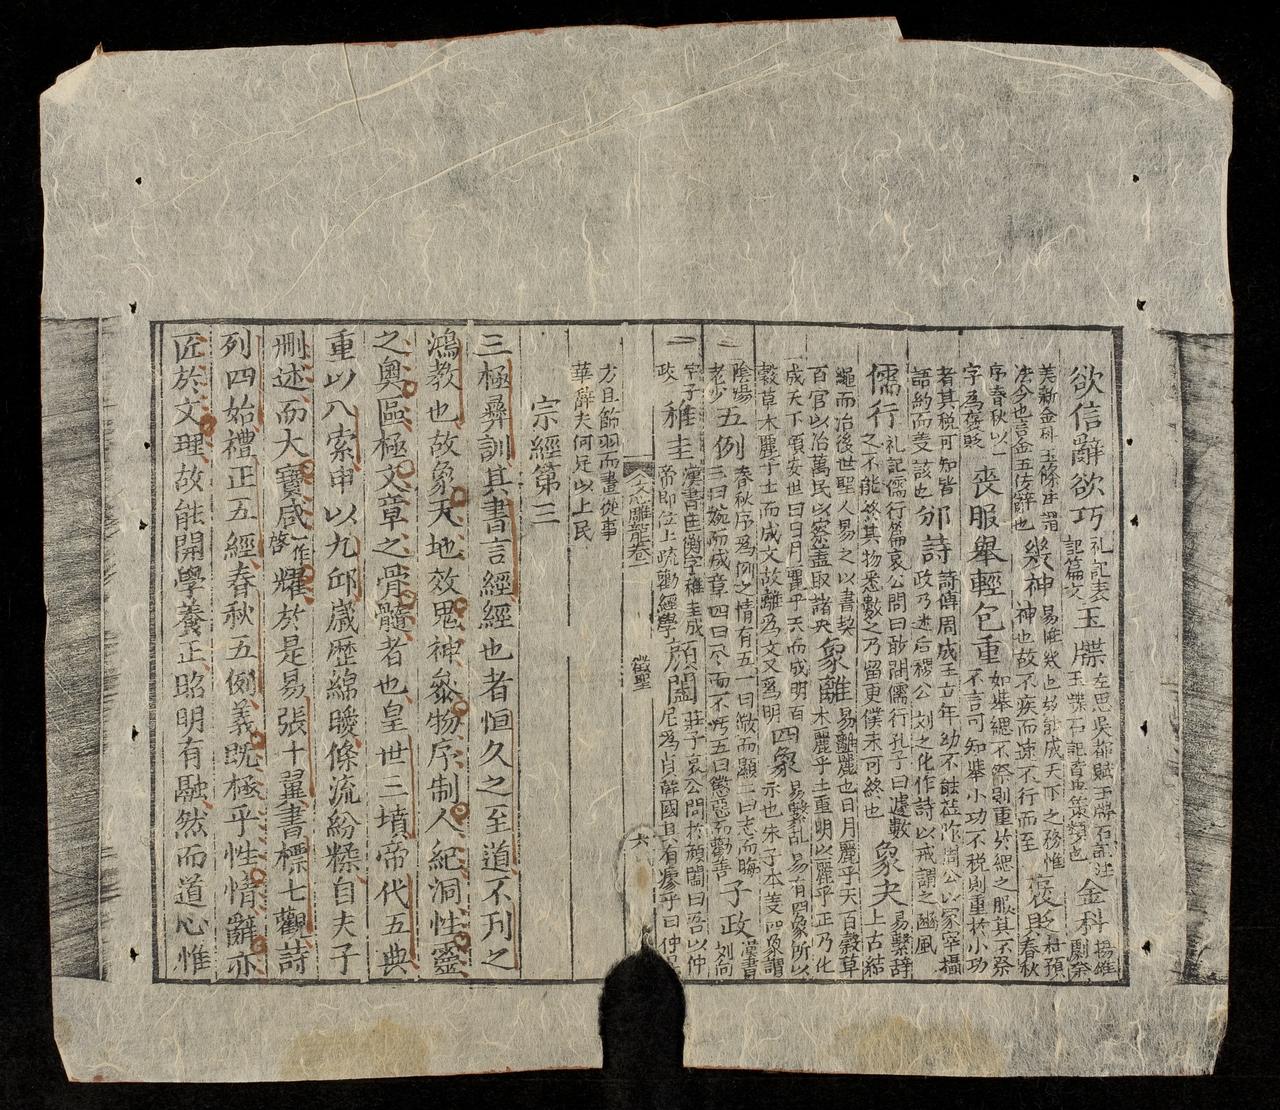 欲信辭欲巧 礼記表記篇文 玉牒 左思吳都賦玉牒石記注玉牒石記皆典策類也 金科 揚雄劇秦
美新金科玉條注謂法令也言金玉佞辭也 幾神 易唯幾也故能成天下之務惟神也故不疾而速不行而至 褒貶 杜預春秋
序春秋以一字為褒貶 喪服舉輕包重 如舉緦不祭則重於緦之服其不祭不言可知舉小功不稅則重於小功
者其稅可知皆語約而義該也 邠詩 詩傳周成王立年幼不能莅阼周公以冢宰攝政乃述后稷公刘之化作詩以戒謂之豳風
儒行 礼記儒行篇哀公問曰敢問儒行孔子曰遽數之不能終其物悉數之乃留更僕未可終也 象夬 易繫辞上古結
繩而治後世聖人易之以書契百官以治萬民以察盖取諸夬 象離 易離麗也日月麗乎天百穀草木麗乎土重明以麗乎正乃化
成天下項安世曰日月麗乎天而成明百穀草木麗于土而成文故離為文又為明 四象 易繫辞易有四象所以示也朱子本義四象謂
陰陽老少 五例 春秋序為例之情有五一曰微而顯二曰志而晦三曰婉而成章四曰尽而不汚五曰懲惡而勸善 子政 漢書刘向
字子政 稚圭 漢書匡衡字稚圭成帝即位上疏勸經學 顏闔 莊子哀公問於顏闔曰吾以仲尼為貞幹國其有瘳乎曰仲尼
方且飾羽而畫從事華辭夫何足以上民
文心雕龍卷一 徵聖 六
宗經第三
三極彝訓其書言經經也者恒久之至道不刊之
鴻教也故象天地效鬼神參物序制人紀洞性靈
之奧區極文章之骨髓者也皇世三墳帝代五典
重以八索申以九邱歲歷綿曖條流紛糅自夫子
刪述而大寶咸一作啓耀於是易張十翼書標七觀詩
列四始禮正五經春秋五例義既極乎性情辭亦
匠於文理故能開學養正昭明有融然而道心惟